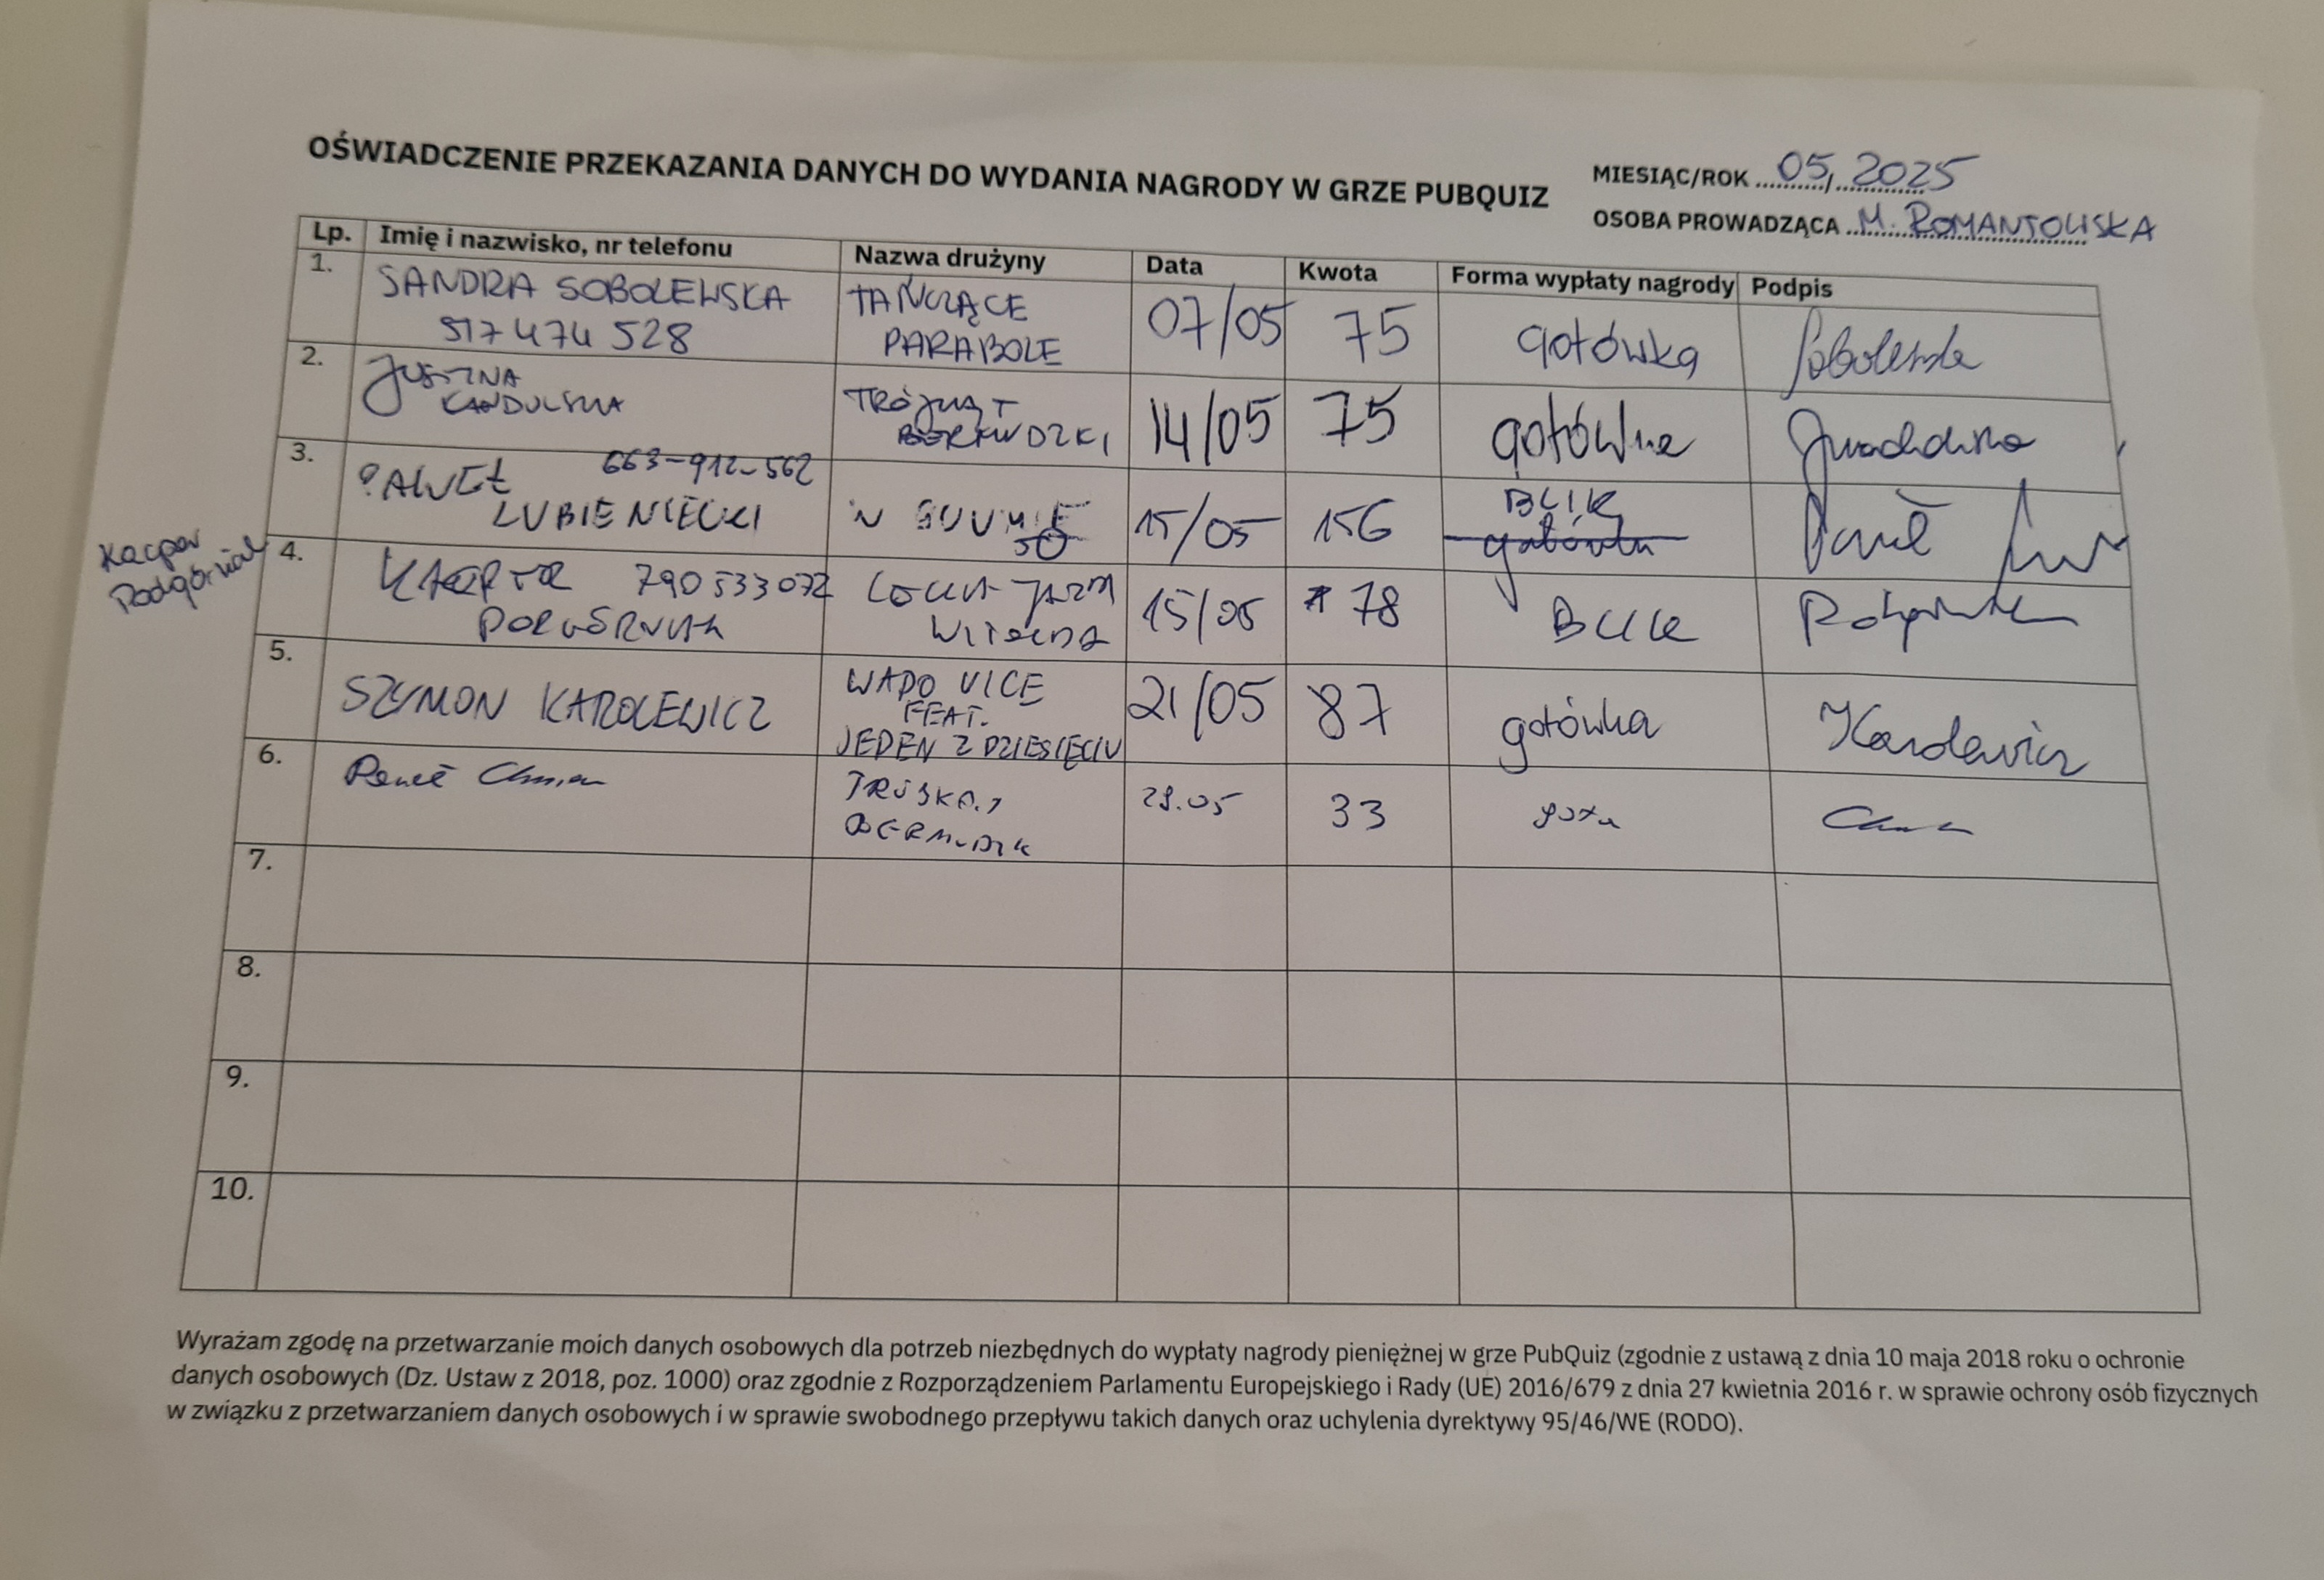 OŚWIADCZENIE PRZEKAZANIA DANYCH DO WYDANIA NAGRODY W GRZE PUBQUIZ
MIESIĄC/ROK 05, 2025
OSOBA PROWADZĄCA M. ROMANTOWSKA
Lp. Imię i nazwisko, nr telefonu Nazwa drużyny Data Kwota Forma wypłaty nagrody Podpis
1. SANDRA SOBOLEWSKA TAŃCZĄCE 07/05 75 gotówka Sobolewska
517 474 528 PARABOLE
2. JUSTYNA TRÓJKĄT 14/05 75 gotówka
KANDULSKA BERMUDZKI
3. PAWEŁ 663-912-562 W 15/05 156 BLIK Paweł
ŁUBIENIECKI gotówka
Kacper
Podgórniak
4. KACPER 790 533 072 15/05 78 BLIK
PODGÓRNIAK
5. SZYMON KAROLEWICZ WAPO VICE 21/05 87 gotówka Karolewicz
FEAT.
JEDEN Z DZIESIĘCIU
6. Paweł TRÓJKĄT 28.05 33
BERMUDZK
7.
8.
9.
10.
Wyrażam zgodę na przetwarzanie moich danych osobowych dla potrzeb niezbędnych do wypłaty nagrody pieniężnej w grze PubQuiz (zgodnie z ustawą z dnia 10 maja 2018 roku o ochronie
danych osobowych (Dz. Ustaw z 2018, poz. 1000) oraz zgodnie z Rozporządzeniem Parlamentu Europejskiego i Rady (UE) 2016/679 z dnia 27 kwietnia 2016 r. w sprawie ochrony osób fizycznych
w związku z przetwarzaniem danych osobowych i w sprawie swobodnego przepływu takich danych oraz uchylenia dyrektywy 95/46/WE (RODO).